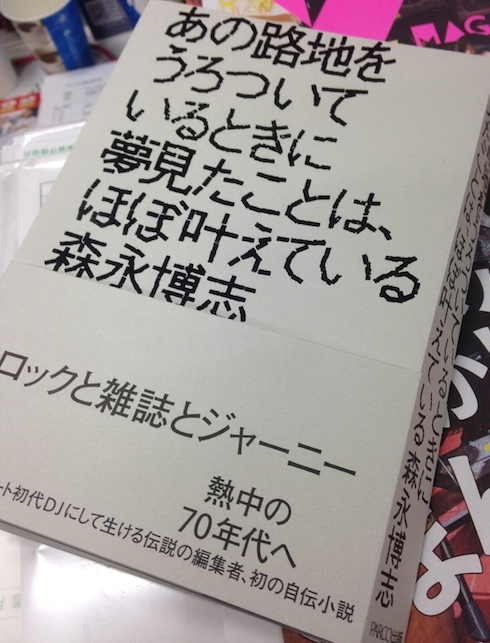 あの路地を
うろついて
いるときに
夢見たことは、
ほぼ叶えている
森永博志
ロックと雑誌とジャーニー
熱中の
70年代へ
ート初代DJにして生ける伝説の編集者、初の自伝小説
あの路地をうろついているときに夢見たことは、ほぼ叶えている 森永博志
PARCO出版
MAG